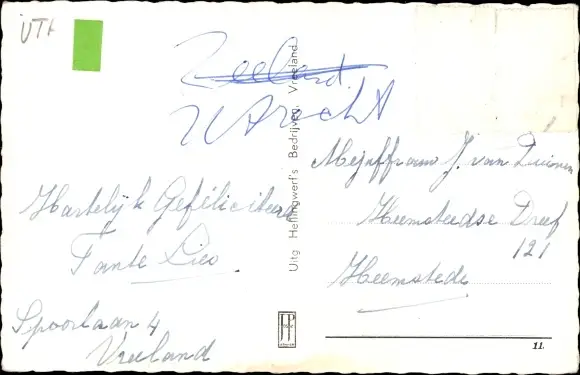 UTR
Zeeland
Utrecht
Hartelijk Gefeliciteerd
Tante Lies
Spoorlaan 4
Vreeland
Uitg Henningwerf's Bedrijven. Vreeland.
Mejuffrouw J. van
Heemsteedse Dreef
121
Heemstede
11.